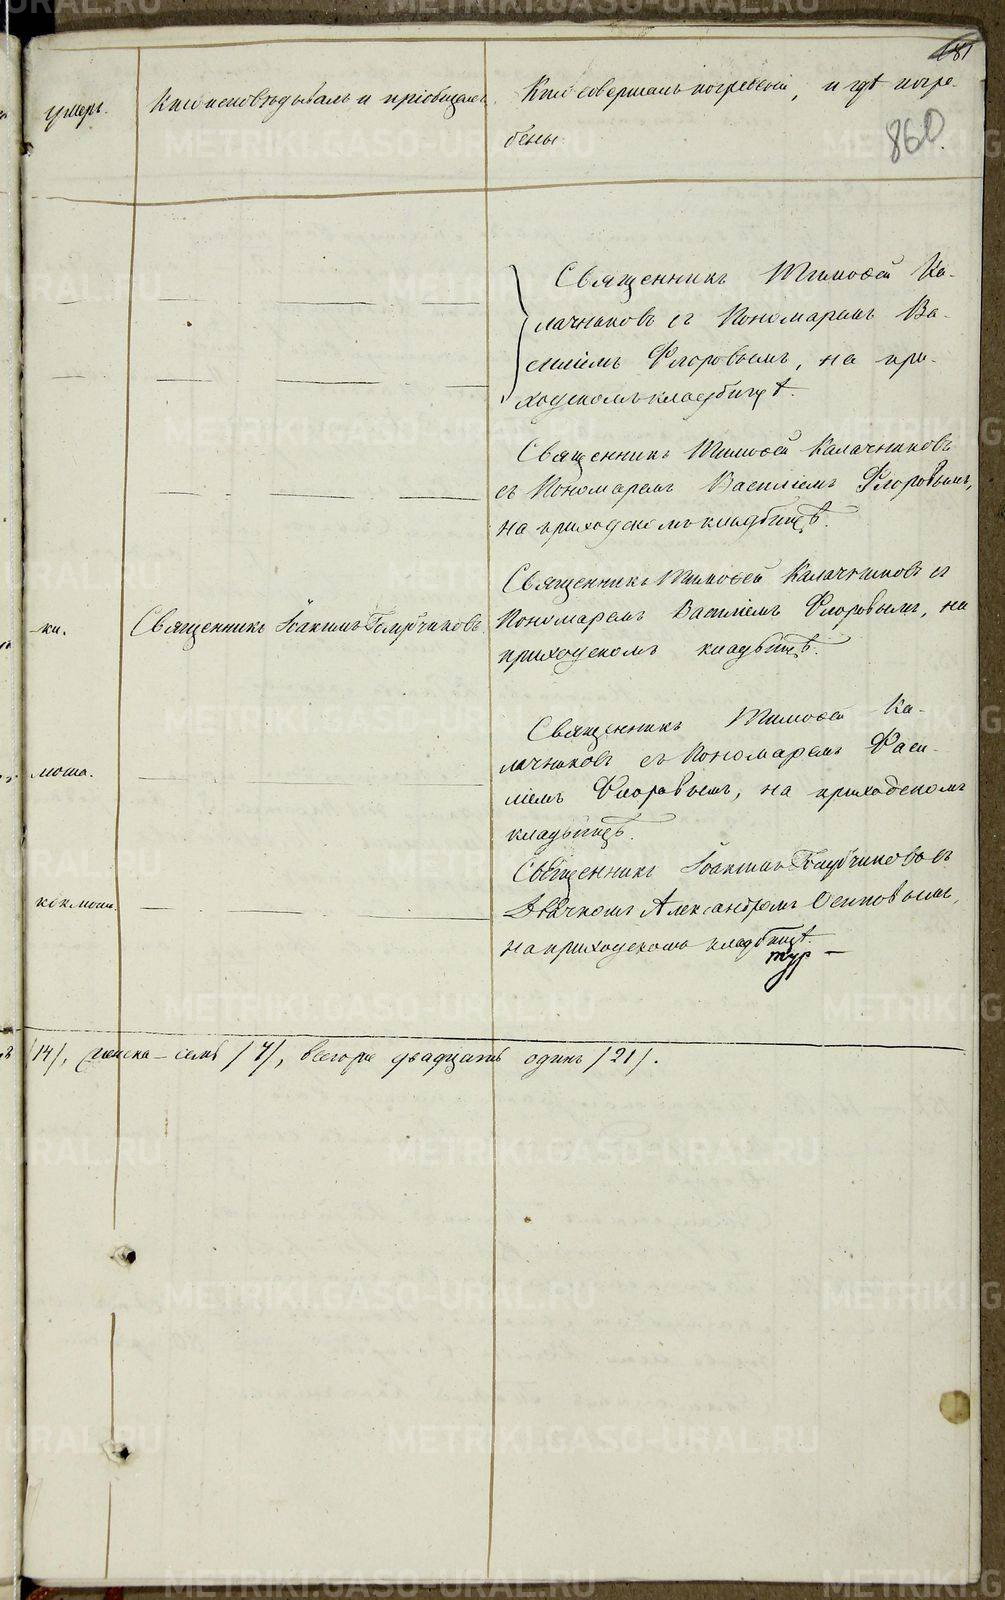 умеръ.
Кто исповѣдывалъ и пріобщалъ.
Кто совершалъ погребеніе, и гдѣ погре-
бены.
860
Священникъ Тимоѳей Ка-
лачниковъ съ Пономаремъ Ва-
силіемъ Флоровымъ, на при-
ходскомъ кладбищѣ.
Священникъ Тимоѳей Калачниковъ
съ Пономаремъ Василіемъ Флоровымъ,
на приходскомъ кладбищѣ.
Священникъ Тимоѳей Калачниковъ съ
ки.
Священникъ Іоакимъ
Пономаремъ Василіемъ Флоровымъ, на
приходскомъ кладбищѣ.
Священникъ Тимоѳей Ка-
лачниковъ съ Пономаремъ Васи-
ліемъ Флоровымъ, на приходскомъ
кладбищѣ.
Священникъ Іоакимъ съ
Дьячкомъ Александромъ Осиповымъ,
на приходскомъ кладбищѣ.
/14/, женска – семь /7/, всего двадцать одинъ /21/.
METRIKI.GASO-URAL.RU